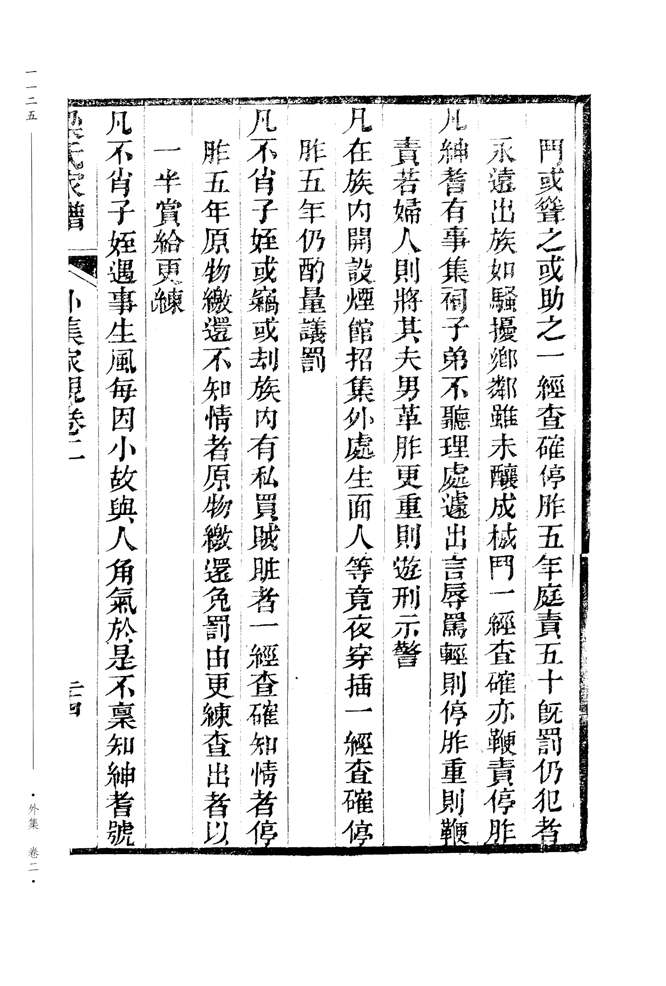 門或聳之或助之一經查確停胙五年庭責五十旣罰仍犯者
永遠出族如騷擾鄉鄰雖未釀成械鬥一經查確亦鞭責停胙
凡紳耆有事集祠子弟不聽理處遽出言辱罵輕則停胙重則鞭
責若婦人則將其夫男革胙更重則遊刑示警
凡在族內開設煙館招集外處生面人等竟夜穿插一經查確停
胙五年仍酌量議罰
凡不肖子姪或竊或刦族內有私買賊賍者一經查確知情者停
胙五年原物繳還不知情者原物繳還免罰由更練查出者以
一半賞給更練
凡不肖子姪遇事生風每因小故與人角氣於是不稟知紳耆號
梁氏家譜
外集家規卷二
二四
一一二五
·外集 卷二·